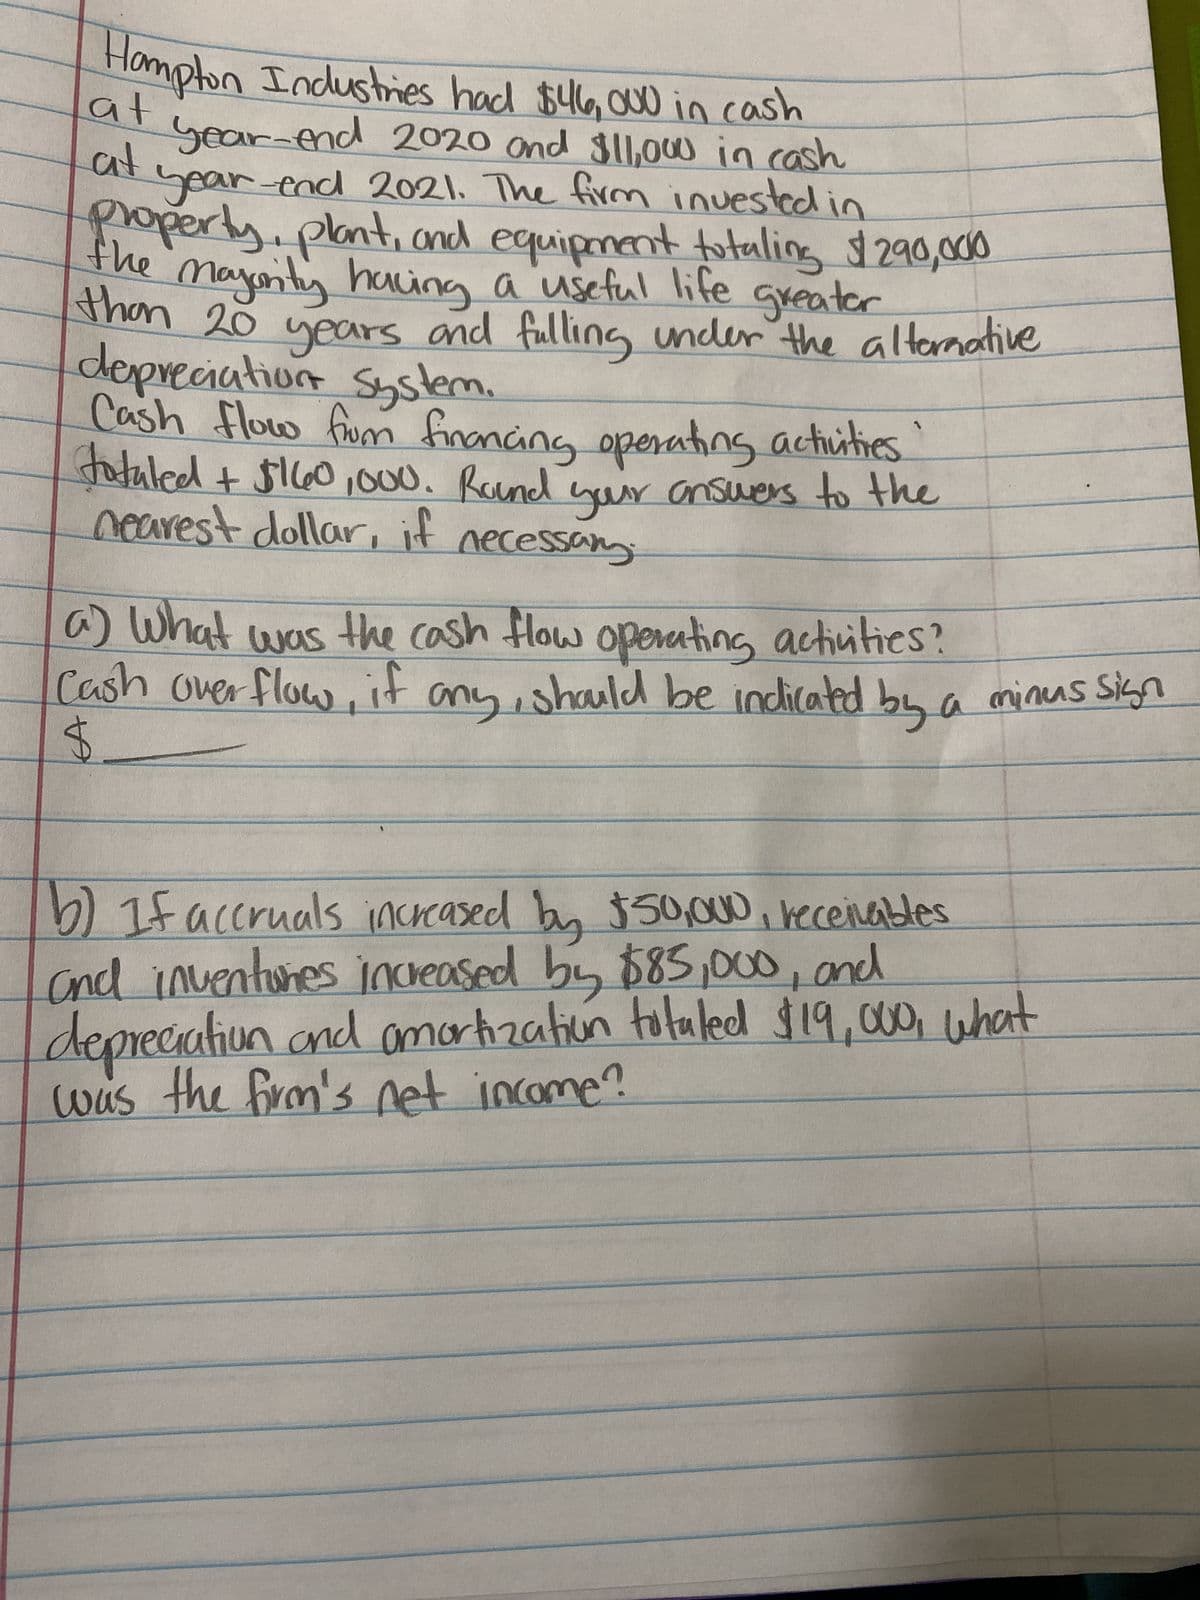 Hampton Industries had $46,000 in cash
at year-end 2020 and $11,000 in cash
at year-end 2021. The firm invested in
property, plant, and equipment totaling $290,000
the majority having a useful life greater
than 20 years and falling under the alternative
depreciation system.
Cash flow from financing operating activities
totaled + $160,000. Round your answers to the
nearest dollar, if necessary.
a) What was the cash flow operating activities?
Cash overflow, if any, should be indicated by a minus sign
$
b) If accruals increased by $50,000, receivables
and inventories increased by $85,000, and
depreciation and amortization totaled $19,000, what
was the firm's net income?